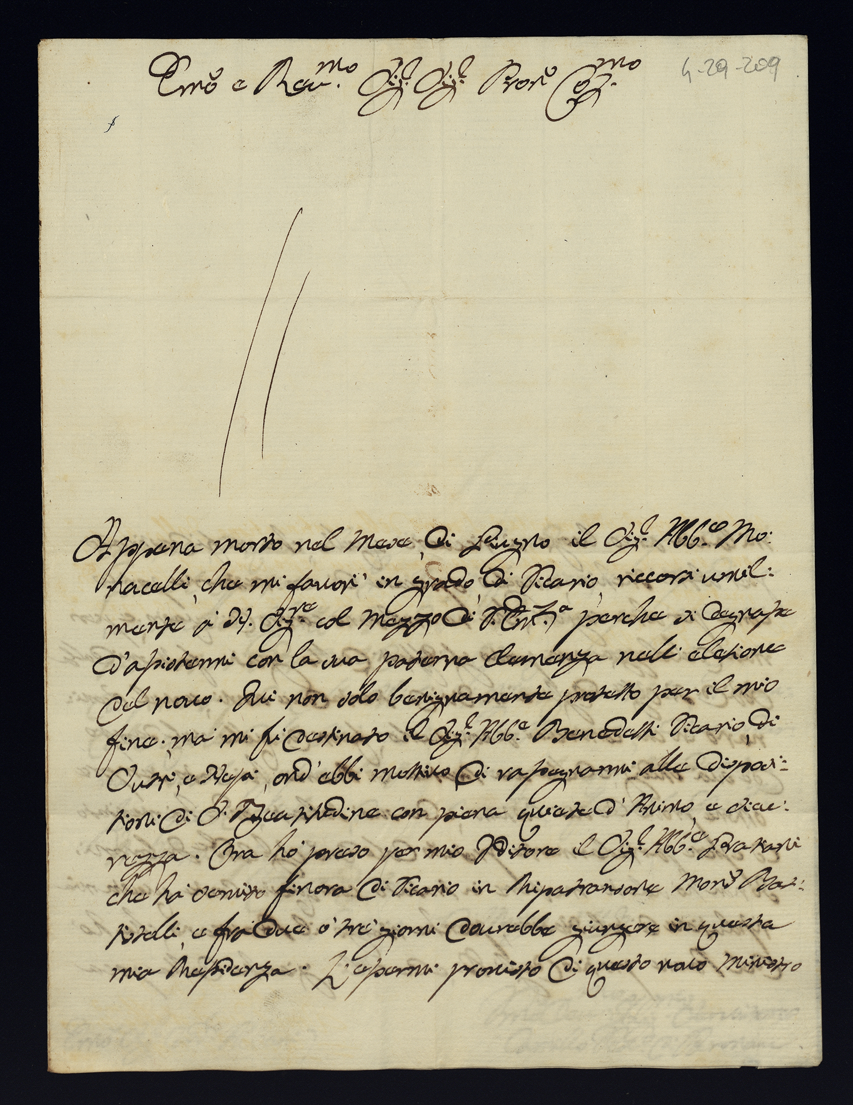 Emo e Reu.mo Sig.r Sig.r Pron Col.mo
4-29-209
Appena morto nel Mese di Giugno il Sig.r Abb.e Mo:
nacelli, che mi favorì in grado di Vicario, ricorsi umil:
mente à col mezzo di perche si degnasse
d'assistermi con la sua paterna clemenza nell'elezione
del novo. Qui non solo benignamente protetto per il mio
fine, mà mi fù destinato il Sig.r Abb.e Benedetti Vicario di
Ostri, e ond'ebbi mottivo di rassegnarmi alle disposi:
tioni di con piena quiete d'Animo, e sicu:
rezza. Ora hò preso per mio Uditore il Sig.r Abb.e Gratiani
che hà servito finora di Vicario in Ripatransone Mons.r Bat:
tistelli, e frà due ò trè giorni dourebbe giungere in questa
mia Residenza. L'essermi provisto di questo novo Ministro